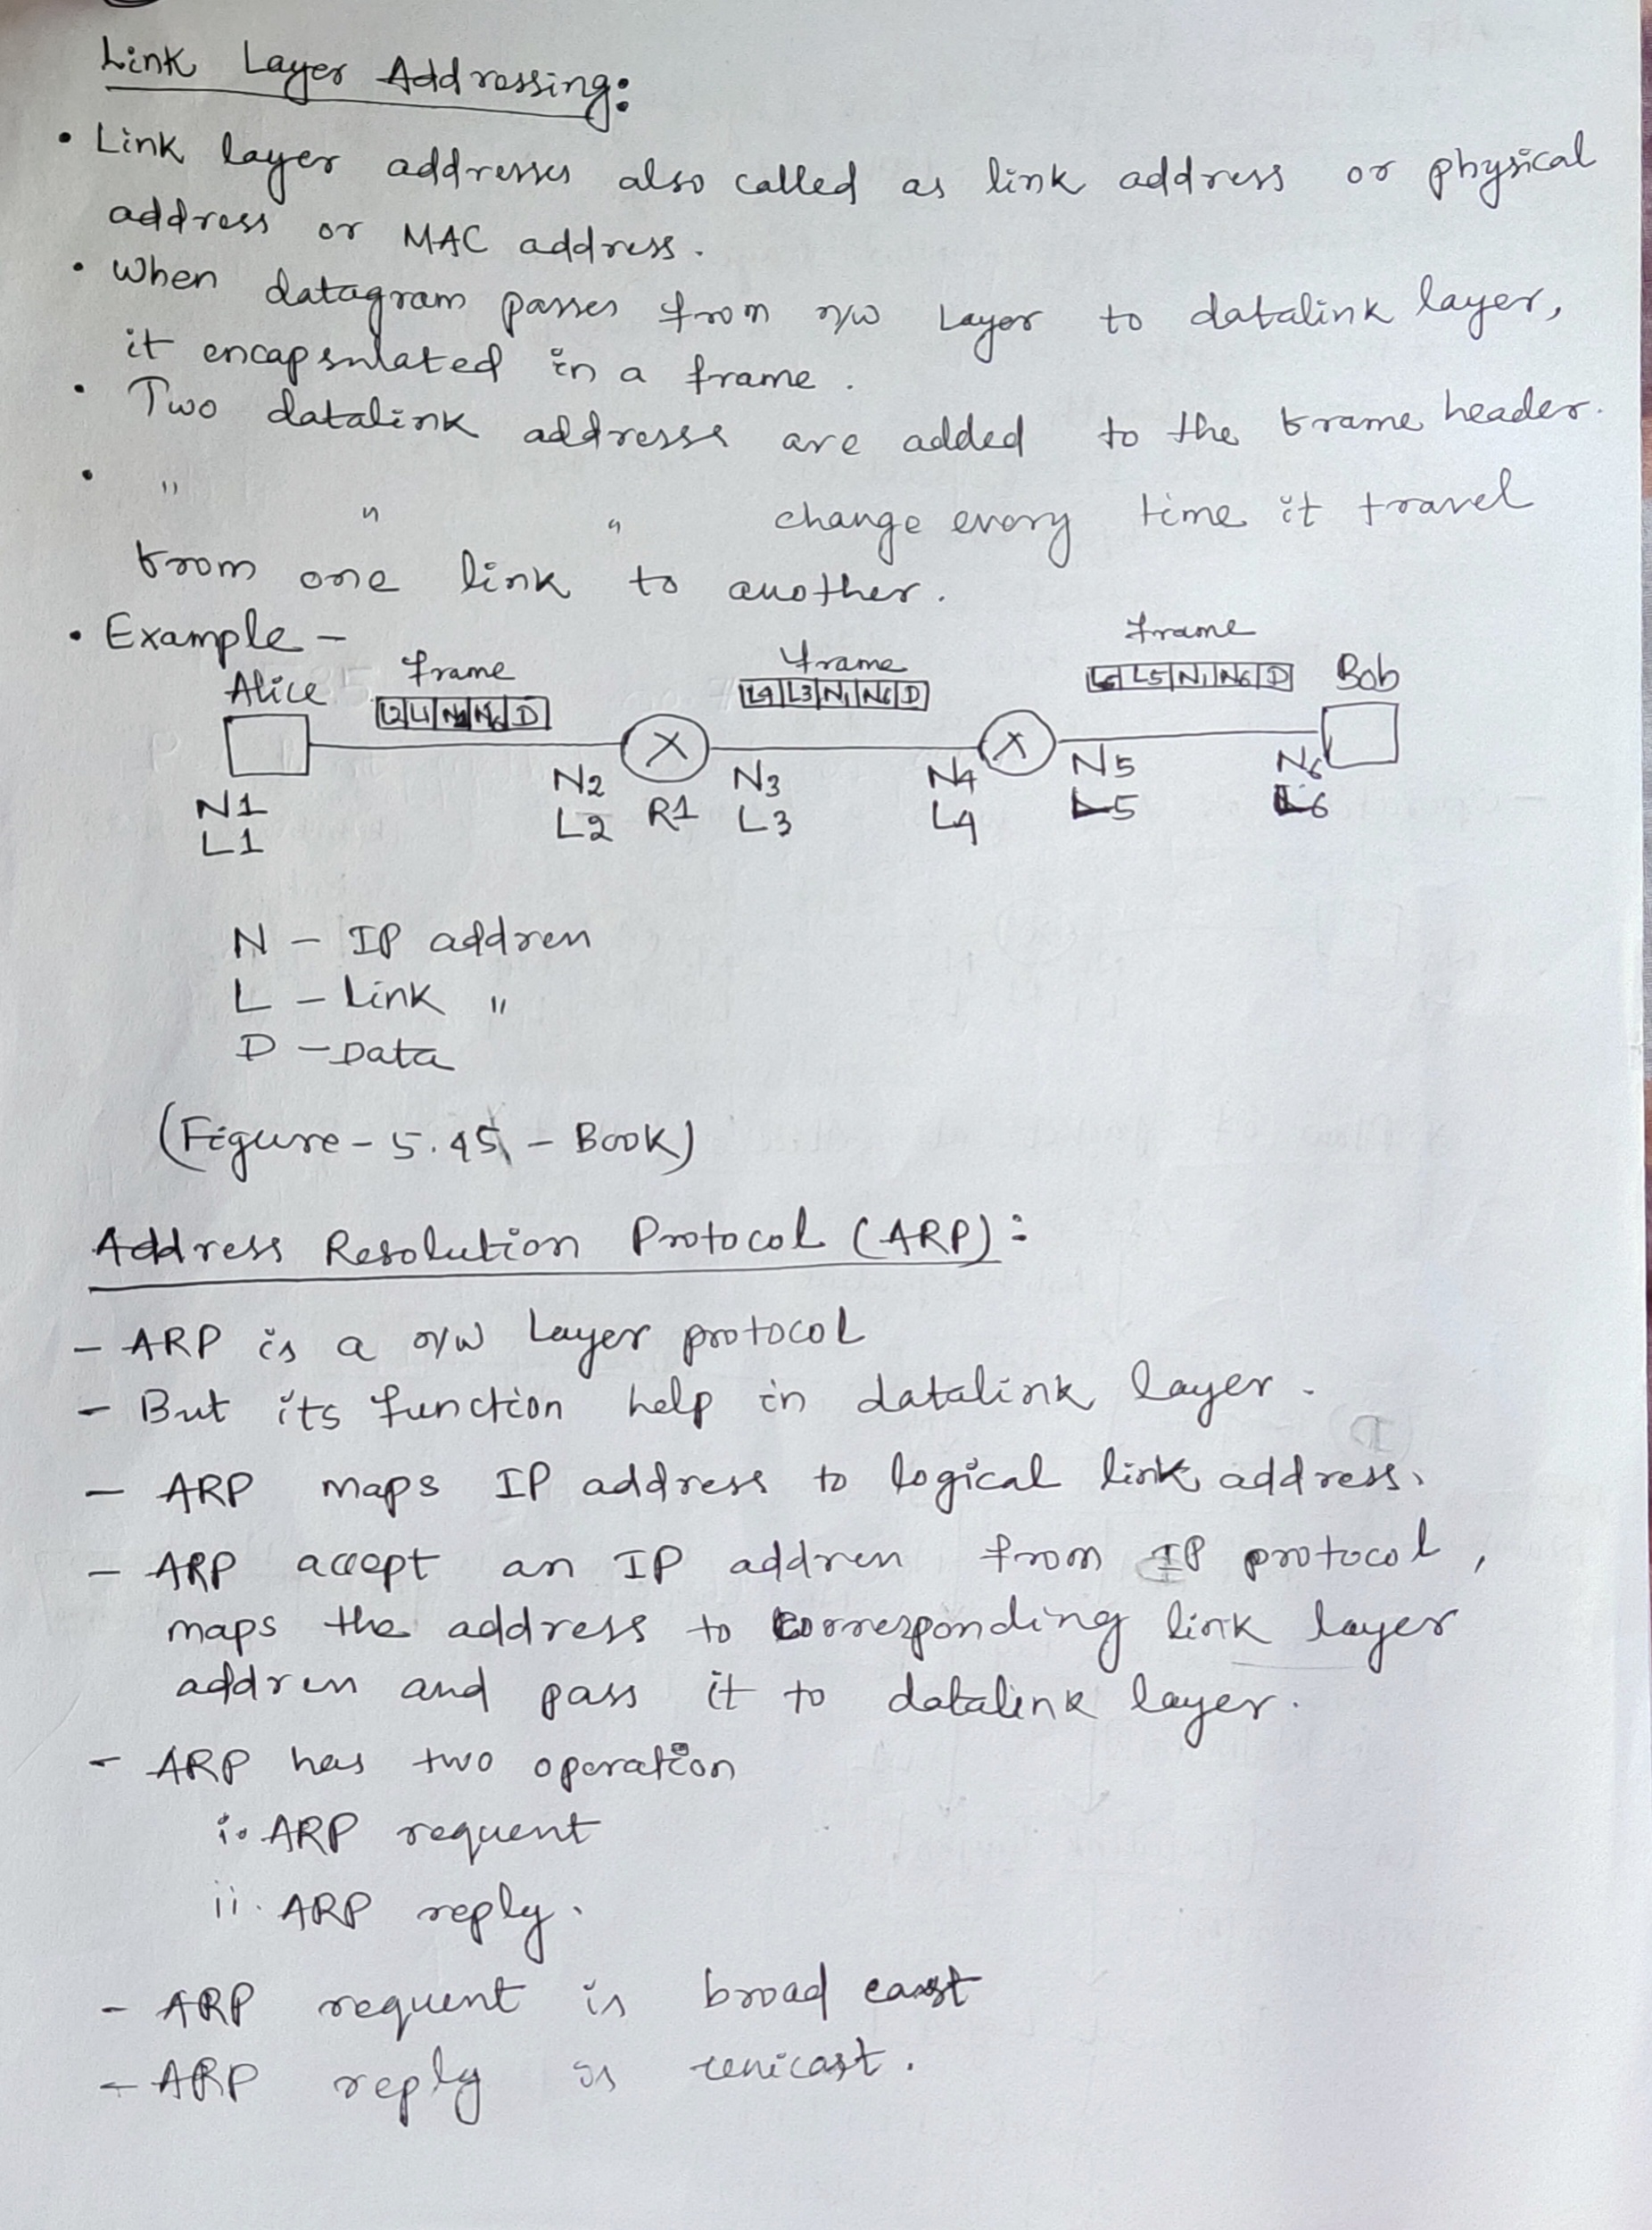 Link Layer Addressing:
• Link layer addresses also called as link address or physical
address or MAC address.
• When datagram passes from n/w Layer to datalink layer,
it encapsulated in a frame.
• Two datalink addresss are added to the frame header.
• " " " change every time it travel
from one link to another.
• Example -
Alice frame frame frame Bob
L2 L1 N1 N6 D L4 L3 N1 N6 D L6 L5 N1 N6 D
X X
N1 N2 R1 N3 N4 N5 N6
L1 L2 L3 L4 L5 L6
N - IP address
L - Link "
D - Data
(Figure - 5.45 - Book)
Address Resolution Protocol (ARP):
- ARP is a n/w Layer protocol
- But its function help in datalink layer.
- ARP maps IP address to logical link address.
- ARP accept an IP address from IP protocol,
maps the address to corresponding link layer
address and pass it to datalink layer.
- ARP has two operation
i. ARP request
ii. ARP reply.
- ARP request is broad cast
- ARP reply is unicast.